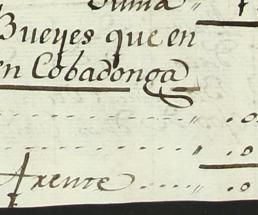 Suma
Bueyes que en
en Cobadonga
.o
.o
Frente .o